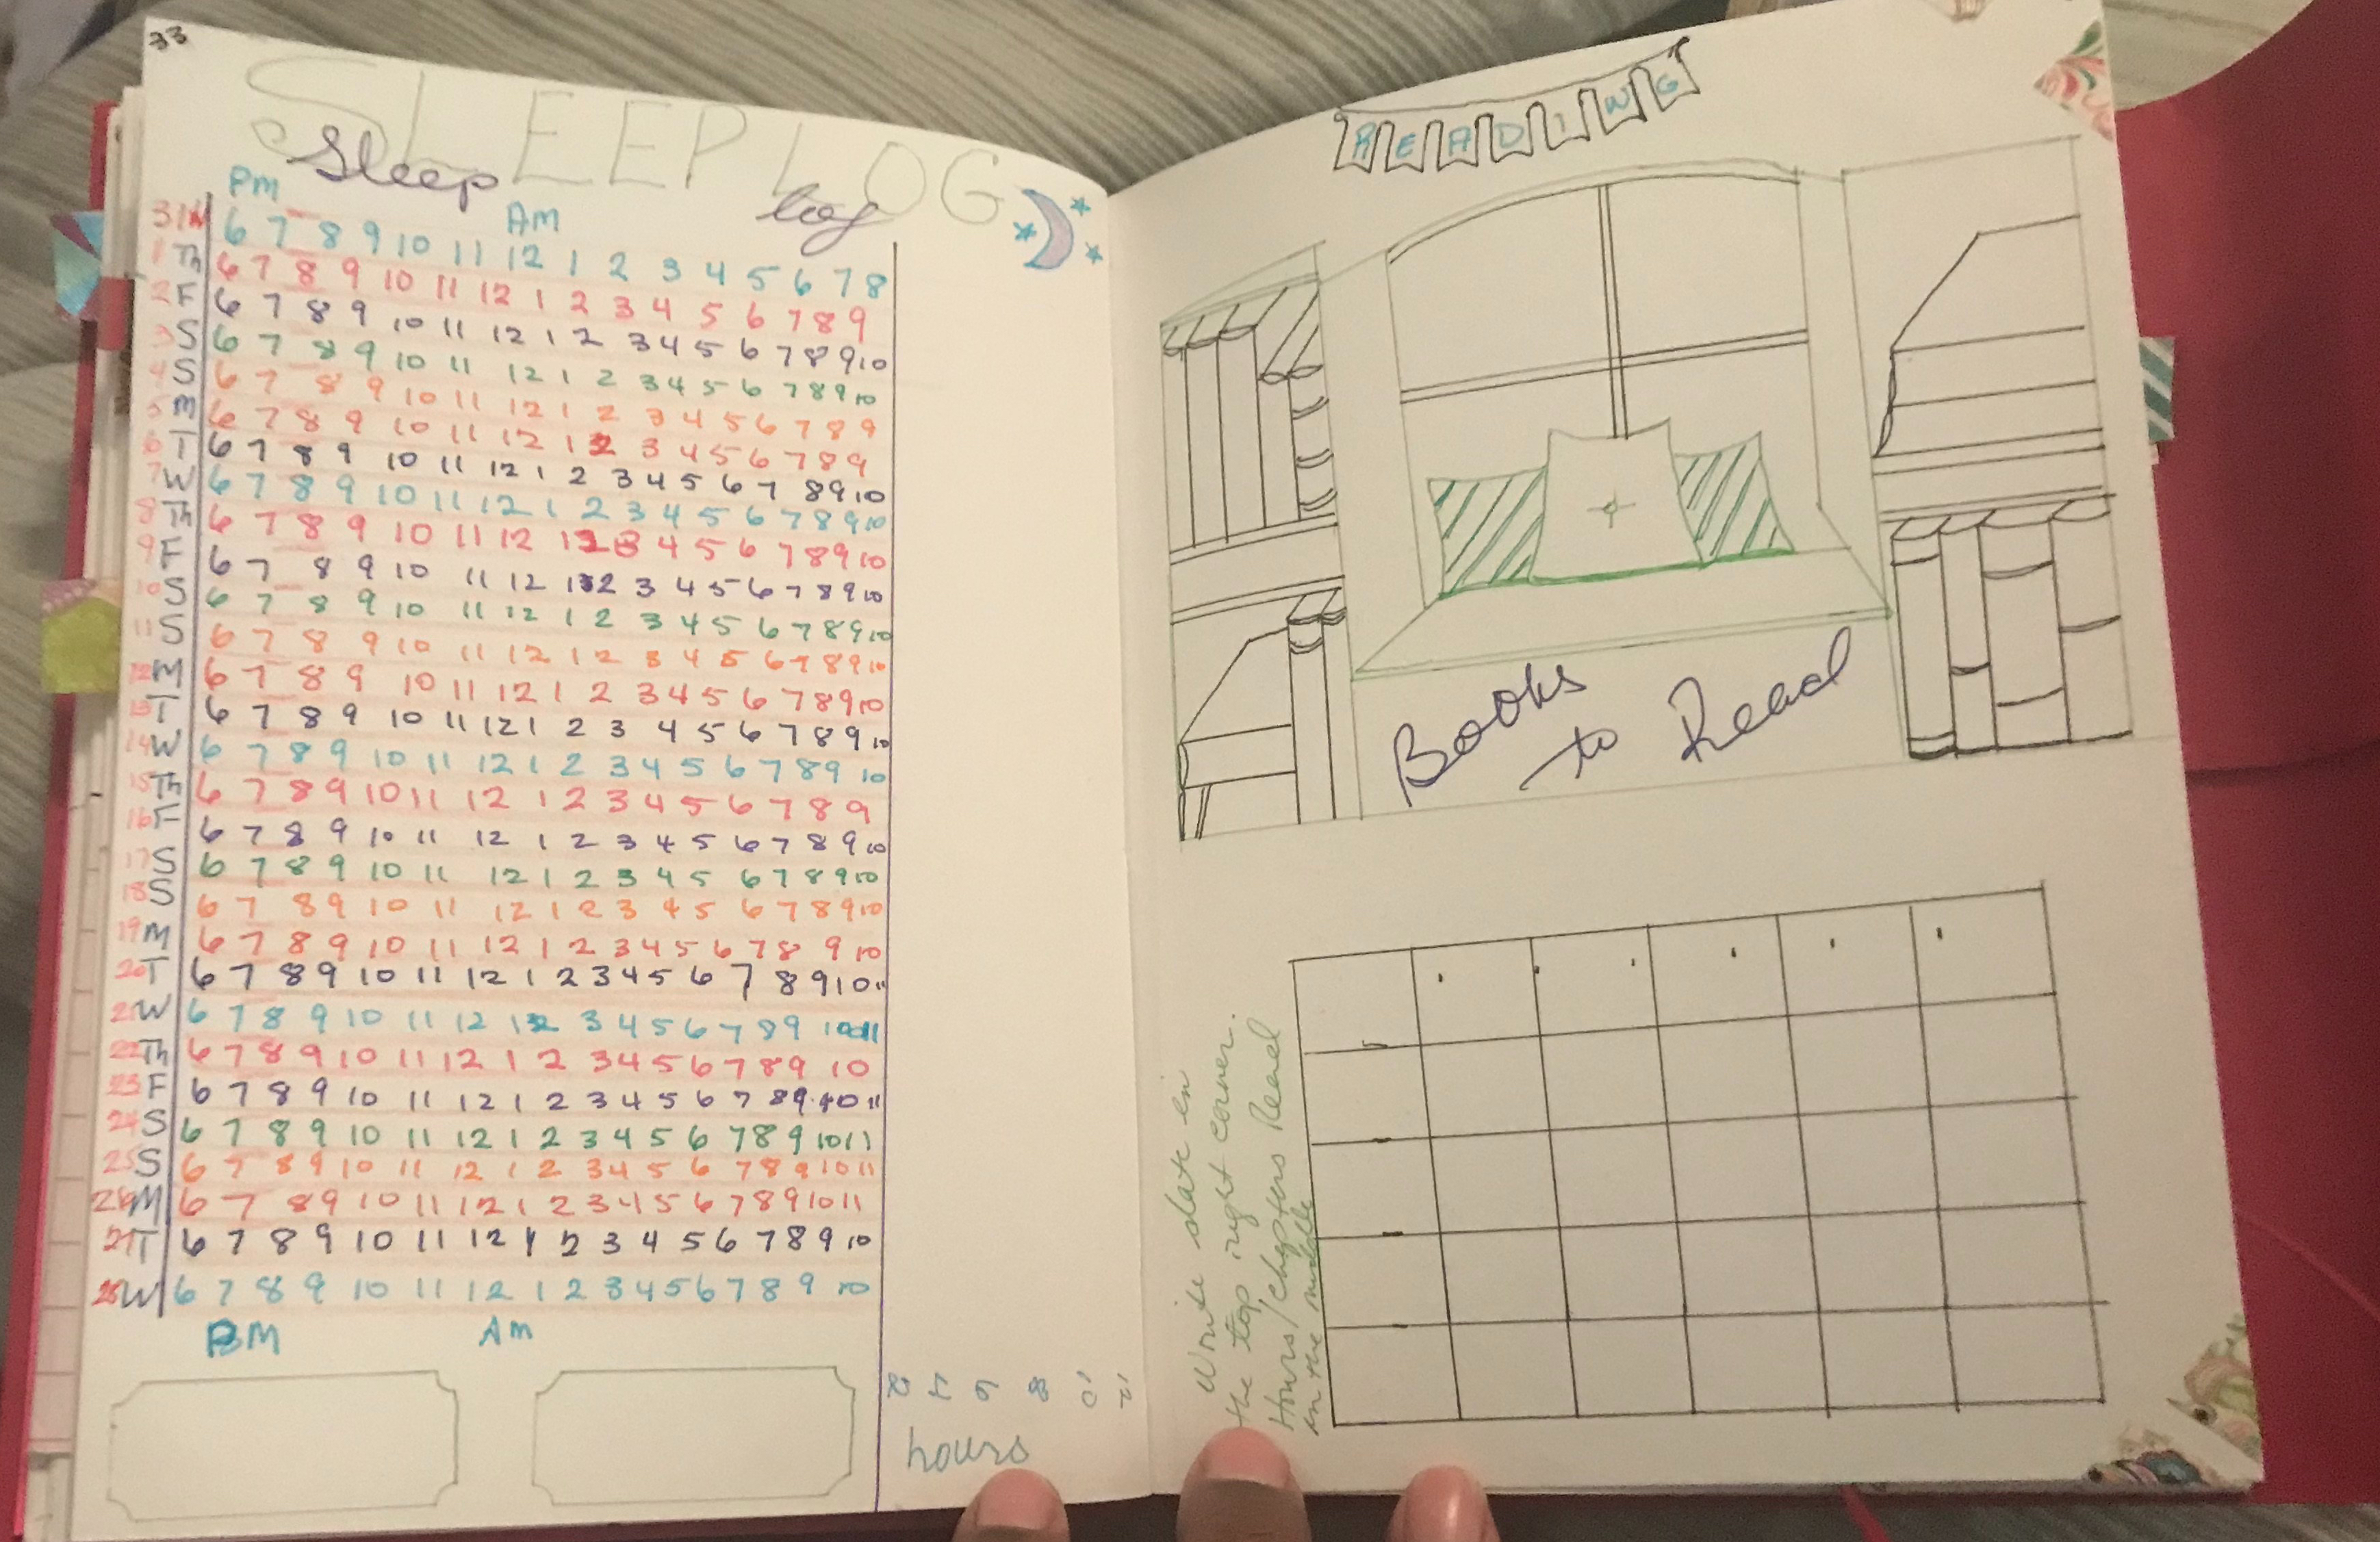 33
SLEEP LOG
Sleep log
PM AM
31 W 6 7 8 9 10 11 12 1 2 3 4 5 6 7 8
1 Th 6 7 8 9 10 11 12 1 2 3 4 5 6 7 8 9
2 F 6 7 8 9 10 11 12 1 2 3 4 5 6 7 8 9 10
3 S 6 7 8 9 10 11 12 1 2 3 4 5 6 7 8 9 10
4 S 6 7 8 9 10 11 12 1 2 3 4 5 6 7 8 9
5 M 6 7 8 9 10 11 12 1 2 3 4 5 6 7 8 9
6 T 6 7 8 9 10 11 12 1 2 3 4 5 6 7 8 9 10
7 W 6 7 8 9 10 11 12 1 2 3 4 5 6 7 8 9 10
8 Th 6 7 8 9 10 11 12 1 2 3 4 5 6 7 8 9 10
9 F 6 7 8 9 10 11 12 1 2 3 4 5 6 7 8 9 10
10 S 6 7 8 9 10 11 12 1 2 3 4 5 6 7 8 9 10
11 S 6 7 8 9 10 11 12 1 2 3 4 5 6 7 8 9 10
12 M 6 7 8 9 10 11 12 1 2 3 4 5 6 7 8 9 10
13 T 6 7 8 9 10 11 12 1 2 3 4 5 6 7 8 9 10
14 W 6 7 8 9 10 11 12 1 2 3 4 5 6 7 8 9 10
15 Th 6 7 8 9 10 11 12 1 2 3 4 5 6 7 8 9
16 F 6 7 8 9 10 11 12 1 2 3 4 5 6 7 8 9 10
17 S 6 7 8 9 10 11 12 1 2 3 4 5 6 7 8 9 10
18 S 6 7 8 9 10 11 12 1 2 3 4 5 6 7 8 9 10
19 M 6 7 8 9 10 11 12 1 2 3 4 5 6 7 8 9 10
20 T 6 7 8 9 10 11 12 1 2 3 4 5 6 7 8 9 10 11
21 W 6 7 8 9 10 11 12 1 2 3 4 5 6 7 8 9 10 11
22 Th 6 7 8 9 10 11 12 1 2 3 4 5 6 7 8 9 10
23 F 6 7 8 9 10 11 12 1 2 3 4 5 6 7 8 9 10 11
24 S 6 7 8 9 10 11 12 1 2 3 4 5 6 7 8 9 10 11
25 S 6 7 8 9 10 11 12 1 2 3 4 5 6 7 8 9 10 11
26 M 6 7 8 9 10 11 12 1 2 3 4 5 6 7 8 9 10 11
27 T 6 7 8 9 10 11 12 1 2 3 4 5 6 7 8 9 10
28 W 6 7 8 9 10 11 12 1 2 3 4 5 6 7 8 9 10
PM AM
8 10 12
hours
READING
Books
to Read
Write date in
the top right corner.
Hours/Chapters Read
in the middle